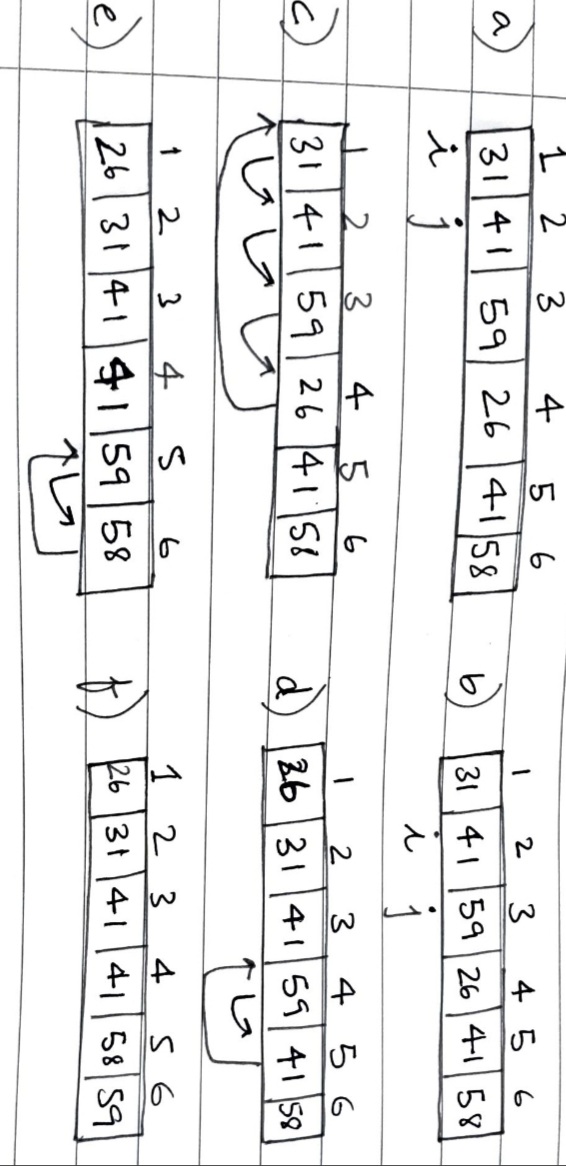 1 2 3 4 5 6
a) 31 41 59 26 41 58
i j
1 2 3 4 5 6
b) 31 41 59 26 41 58
i j
1 2 3 4 5 6
c) 31 41 59 26 41 58
1 2 3 4 5 6
d) 26 31 41 59 41 58
1 2 3 4 5 6
e) 26 31 41 41 59 58
1 2 3 4 5 6
f) 26 31 41 41 58 59